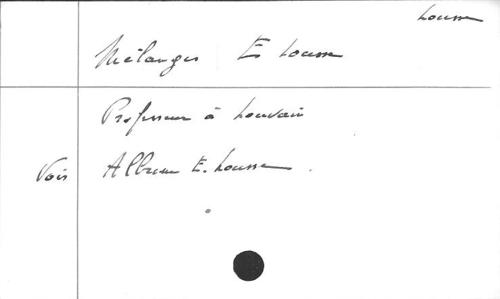 Lousse
Mélanges E Lousse
Professeur à Louvain
Voir Album E. Lousse.